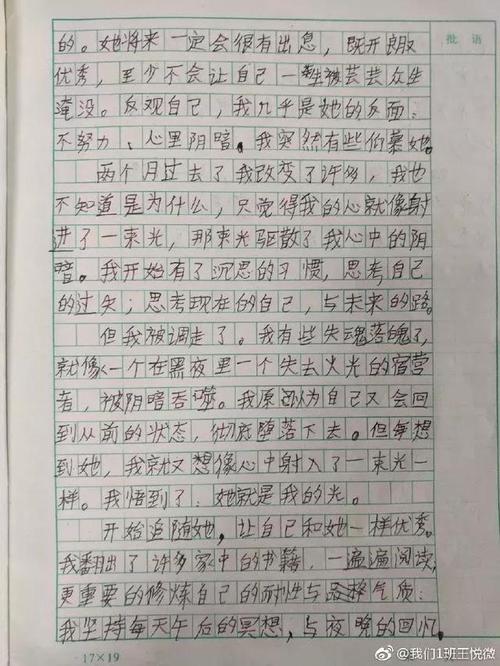 批语
的。她将来一定会很有出息，既开良服
优秀，至少不会让自己一生被芸芸众生
淹没。反观自己，我几乎是她的反面：
不努力、心里阴暗。我突然有些伯慕她。
两个月过去了我改变了许多，我也
不知道是为什么，只觉得我的心就像射
进了一束光，那束光驱散了我心中的阴
暗。我开始有了沉思的习惯，思考自己
的过失；思考现在的自己，与未来的路。
但我被调走了。我有些失魂落魄了，
就像一个在黑夜里一个失去火光的宿营
者，被阴暗吞噬。我原以为自己又会回
到从前的状态，彻底堕落下去。但每想
到她，我就又想像心中射入了一束光一
样。我悟到了：她就是我的光。
开始追随她，让自己和她一样优秀。
我翻出了许多家中的书籍，一遍遍阅读，
更重要的修炼自己的耐性与气质：
我坚持每天午后的冥想，与夜晚的回忆。
17×19
@我们1班王悦微